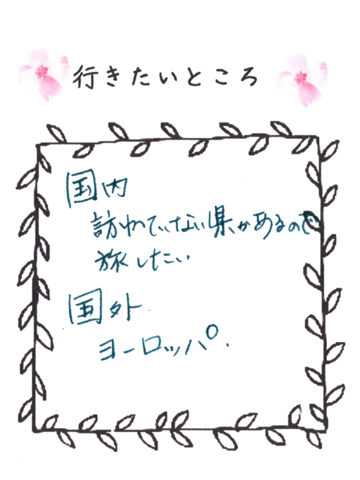 行きたいところ
国内
訪れていない県があるので
旅したい
国外
ヨーロッパ.